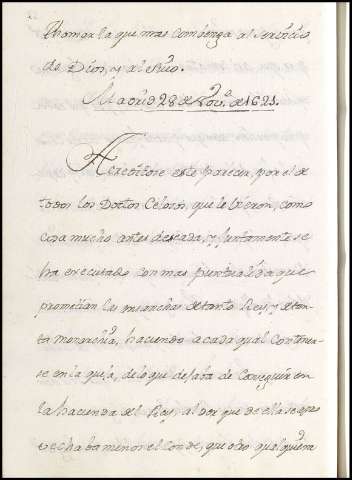 thomar la que mas combenga al serbicio
de Dios, y al Rno.
Madrid 28 de Nobre. de 1621.
Acreditose este parecer, por el de
todos los Doctos Celosos, que le bieron, como
cosa mucho antes deseada, y juntamente se
ha executado con mas puntualidad a que
prometian las de tanto Rey, y de tan-
ta monarchia, haciendo a cada qual Contener-
se en la queja, de lo que dejaba de Conseguir en
la hacienda del Rey, al ver que de ella se apro
vechaba menor el Conde, que otro qualquiera